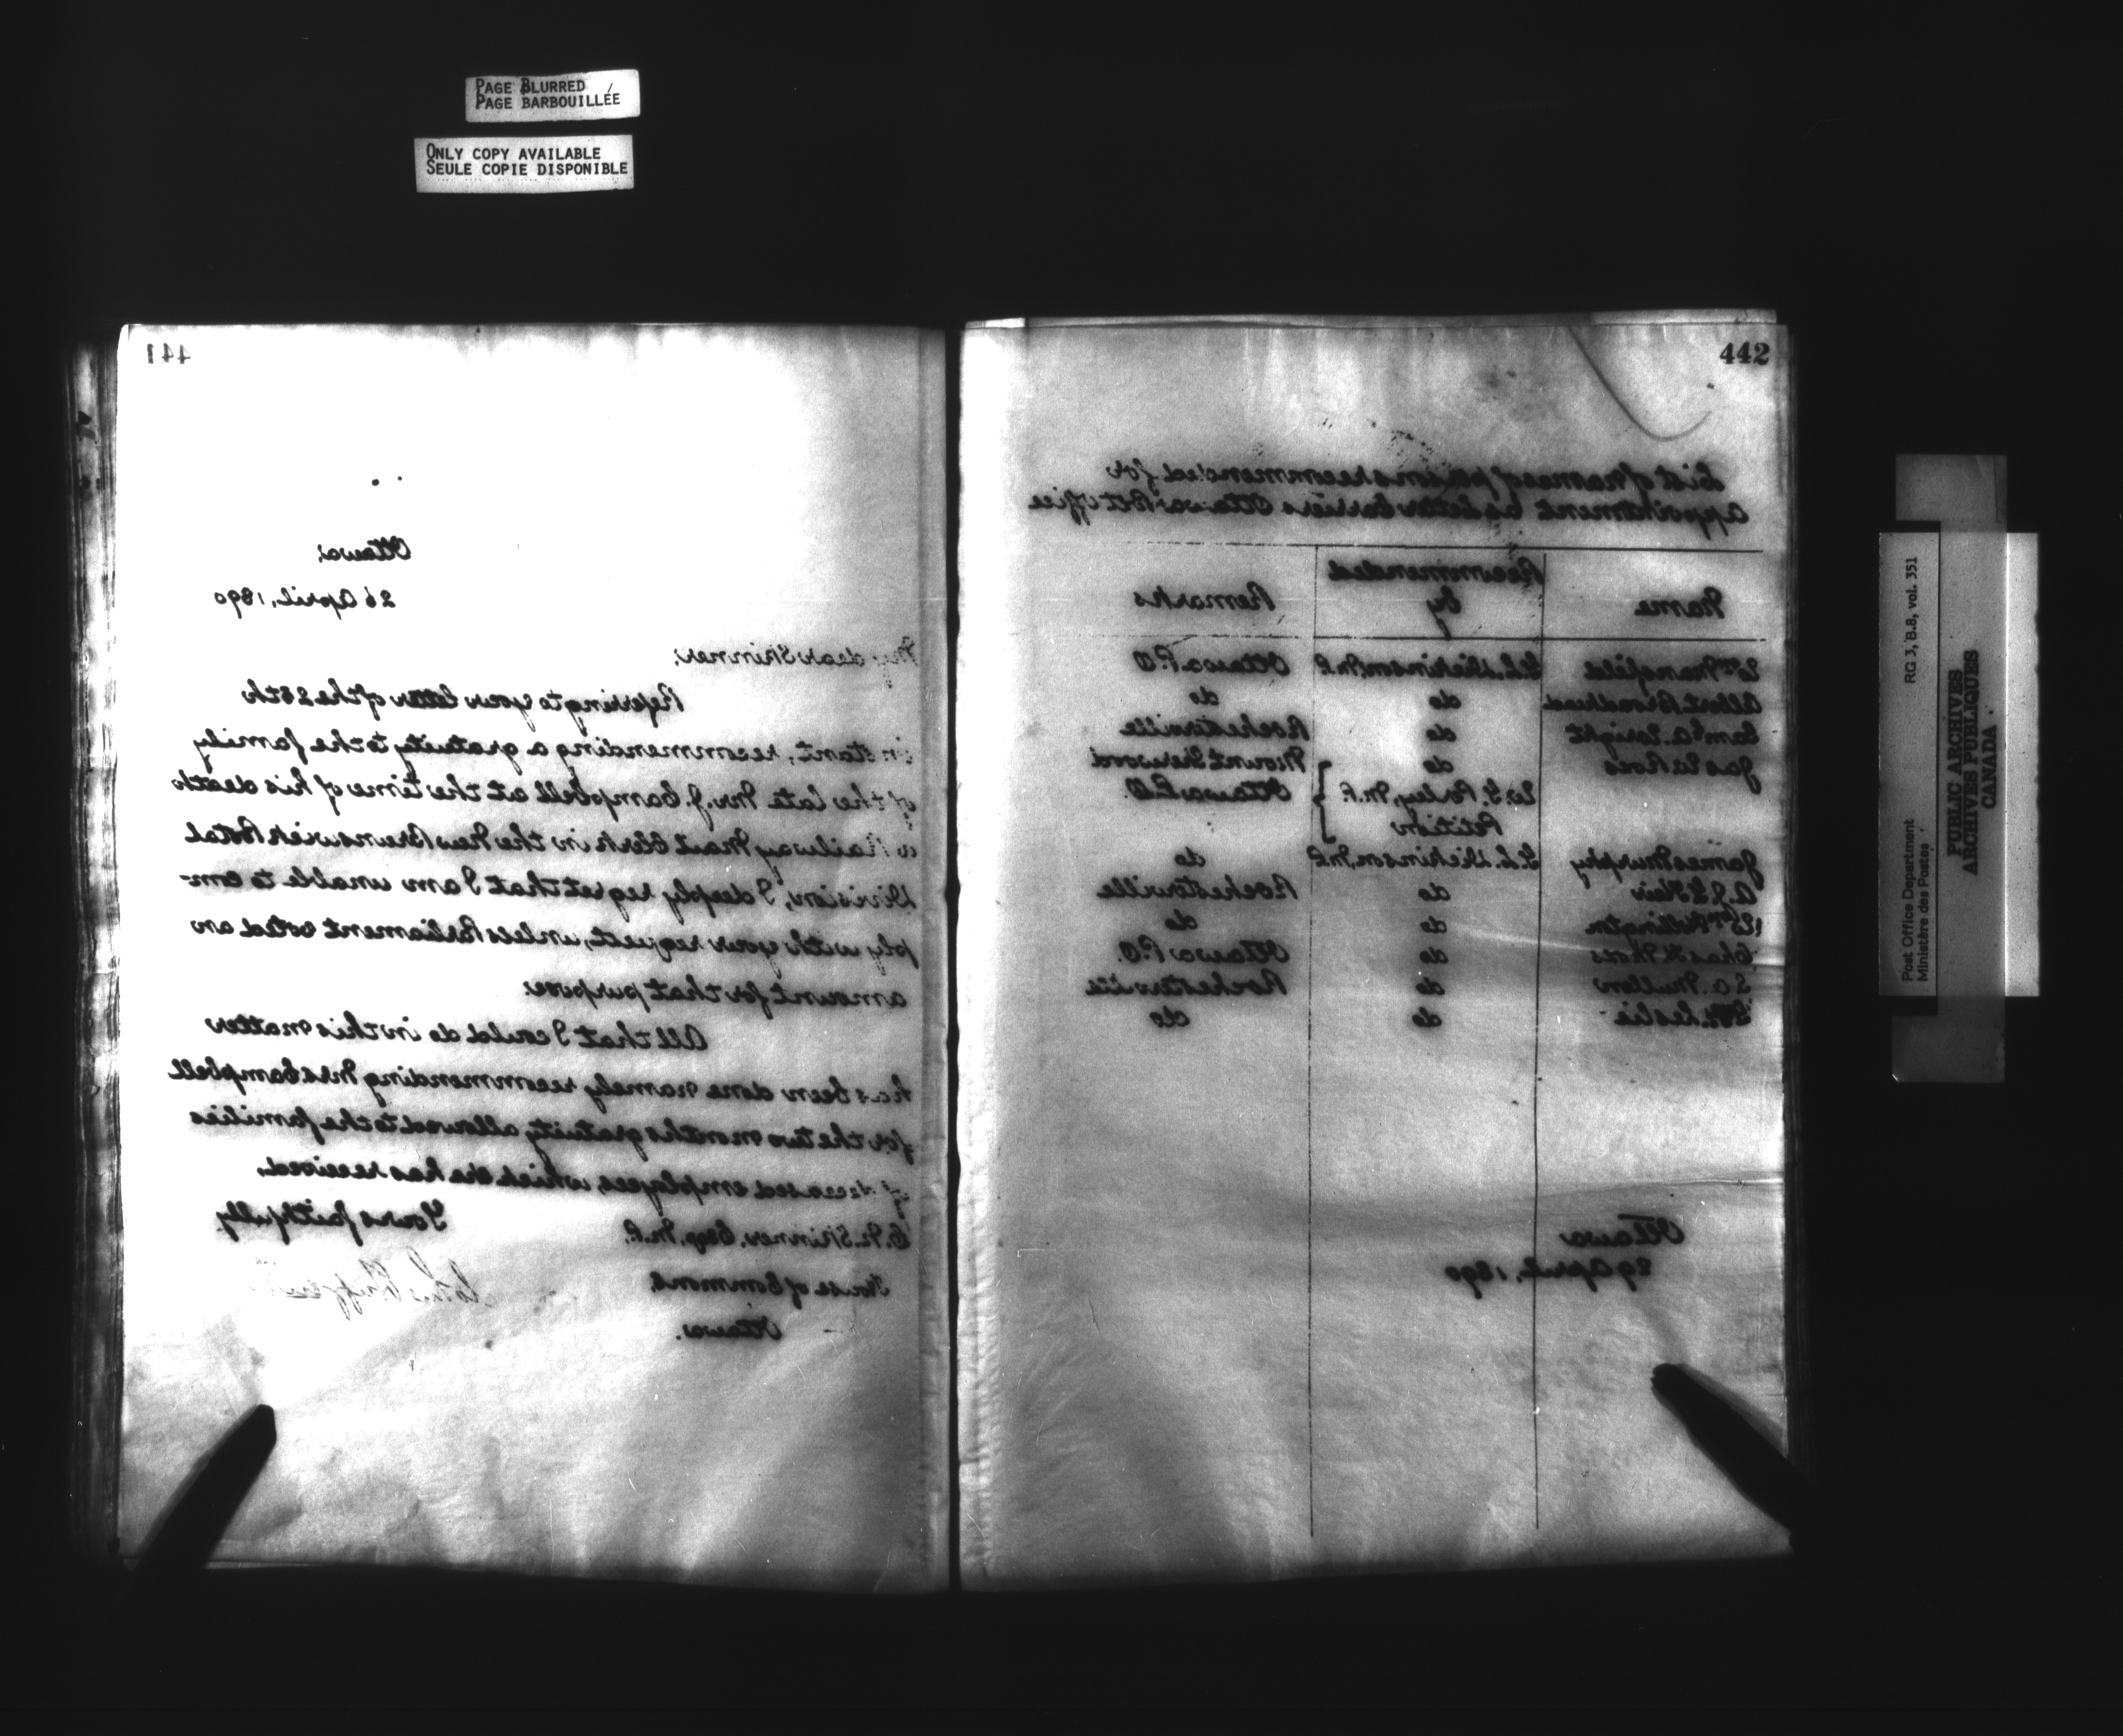 PAGE BLURRED
PAGE BARBOUILLÉE
ONLY COPY AVAILABLE
SEULE COPIE DISPONIBLE
441
Ottawa,
26 April, 1890
My dear Skinner,
Referring to your letter of the 25th
instant, recommending a gratuity to the family
of the late Mr. J. Campbell at the time of his death
a Railway Mail Clerk in the New Brunswick Postal
Division, I deeply regret that I am unable to com-
ply with your request, unless Parliament voted an
amount for that purpose.
All that I could do in this matter
has been done namely recommending Mrs Campbell
for the two months gratuity allowed to the families
of deceased employees, which she has received.
Yours faithfully
C. N. Skinner, Esq, M.P.
House of Commons,
Ottawa.
442
List of names of persons recommended for
appointment as Letter Carriers Ottawa Post Office
Name Recommended by Remarks
Wm Mansfield G.L. Dickinson, M.P. Ottawa P.O
Albert Broadhead do do
Saml A. Wright do Rochesterville
Jas do Mount Sherwood
Porley, M.P. Ottawa P.O.
Petition
James Murphy G.L. Dickinson, M.P. do
do Rochesterville
Wm do do
Chas do Ottawa P.O.
S. A. Mullen do Rochesterville
Leslie do do
Ottawa
29 April, 1890
Post Office Department
Ministère des Postes
RG 3, B.8, vol. 351
PUBLIC ARCHIVES
ARCHIVES PUBLIQUES
CANADA